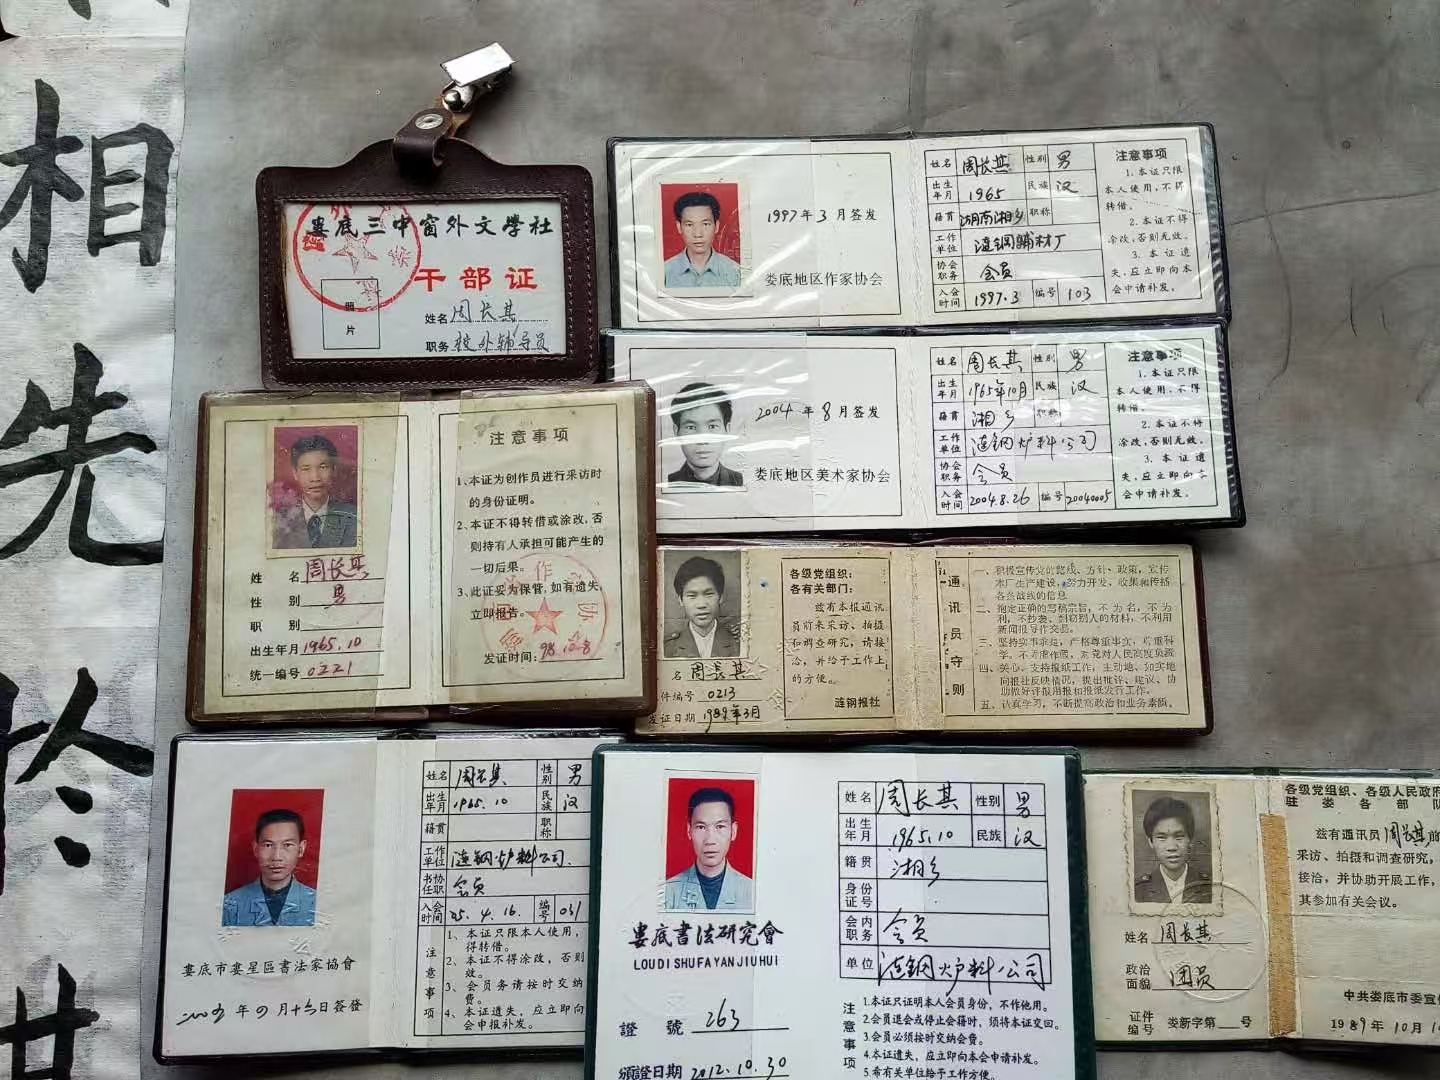 相
先
於
世
娄底三中窗外文学社
干部证
照
片
姓名 周长其
职务 校外辅导员
1997年3月签发
娄底地区作家协会
姓名 周长其 性别 男
出生年月 1965 民族 汉
籍贯 湖南湘乡 职称
工作单位 涟钢辅材厂
协会职务 会员
入会时间 1997.3 编号 103
注意事项
1.本证只限
本人使用,不得
转借。
2.本证不得
涂改,否则无效。
3.本证遗
失,应立即向本
会申请补发。
2004年8月签发
娄底地区美术家协会
姓名 周长其 性别 男
出生年月 1965年10月 民族 汉
籍贯 湘乡 职称
工作单位 涟钢炉料公司
协会职务 会员
入会时间 2004.8.26 编号 20040005
注意事项
1.本证只限
本人使用,不得
转借。
2.本证不得
涂改,否则无效。
3.本证遗
失,应立即向本
会申请补发。
姓名 周长其
性别 男
职别
出生年月 1965.10
统一编号 0221
注意事项
1、本证为创作员进行采访时
的身份证明。
2、本证不得转借或涂改,否
则持有人承担可能产生的
一切后果。
3、此证妥为保管,如有遗失,
立即报告。
发证时间:98.10.8
名 周长其
件编号 0213
发证日期 1989年3月
各级党组织:
各有关部门:
兹有本报通讯
员前来采访、拍摄
和调查研究,请接
洽,并给予工作上
的方便。
涟钢报社
通讯员守则
一、积极宣传党的路线、方针、政策,宣传
本厂生产建设,努力开发、收集和传播
各条战线的信息
二、抱定正确的写稿宗旨,不为名,不为
利,不抄袭、剽窃别人的材料,不利用
新闻报导作交易。
三、坚持实事求是,严格尊重事实,尊重科
学,不弄虚作假,对党对人民高度负责
四、关心、支持报纸工作,主动地、如实地
向报社反映情况,提出批评、建议、协
助做好评报用报和报纸发行工作。
五、认真学习,不断提高政治和业务素质。
娄底市娄星區書法家協會
二〇〇五年四月十六日签發
姓名 周长其 性别 男
出生年月 1965.10 民族 汉
籍贯 职称
工作单位 涟钢炉料公司.
书协任职 会员
入会时间 05.4.16. 编号 031
注意事项
1、本证只限本人使用,
不得转借。
2、本证不得涂改,否则
无效。
3、会员务请按时交纳
会费。
4、本证遗失,应立即向
本会申报补发。
娄底書法研究會
LOUDISHUFAYANJIUHUI
證號 263
頒證日期 2012.10.30
姓名 周长其 性别 男
出生年月 1965.10 民族 汉
籍贯 湘乡
身份证号
会内职务 会员
单位 涟钢炉料公司
注意事项
1.本证只证明本人会员身份,不作他用。
2.会员退会或停止会籍时,须将本证交回。
3.会员必须按时交纳会费。
4.本证遗失,应立即向本会申请补发。
5.希有关单位给予工作方便。
姓名 周长其
政治面貌 团员
证件编号 娄新字第 号
各级党组织、各级人民政府
驻娄各部队
兹有通讯员周长其前
采访、拍摄和调查研究,
接洽,并协助开展工作,
其参加有关会议。
中共娄底市委宣
1989年10月1